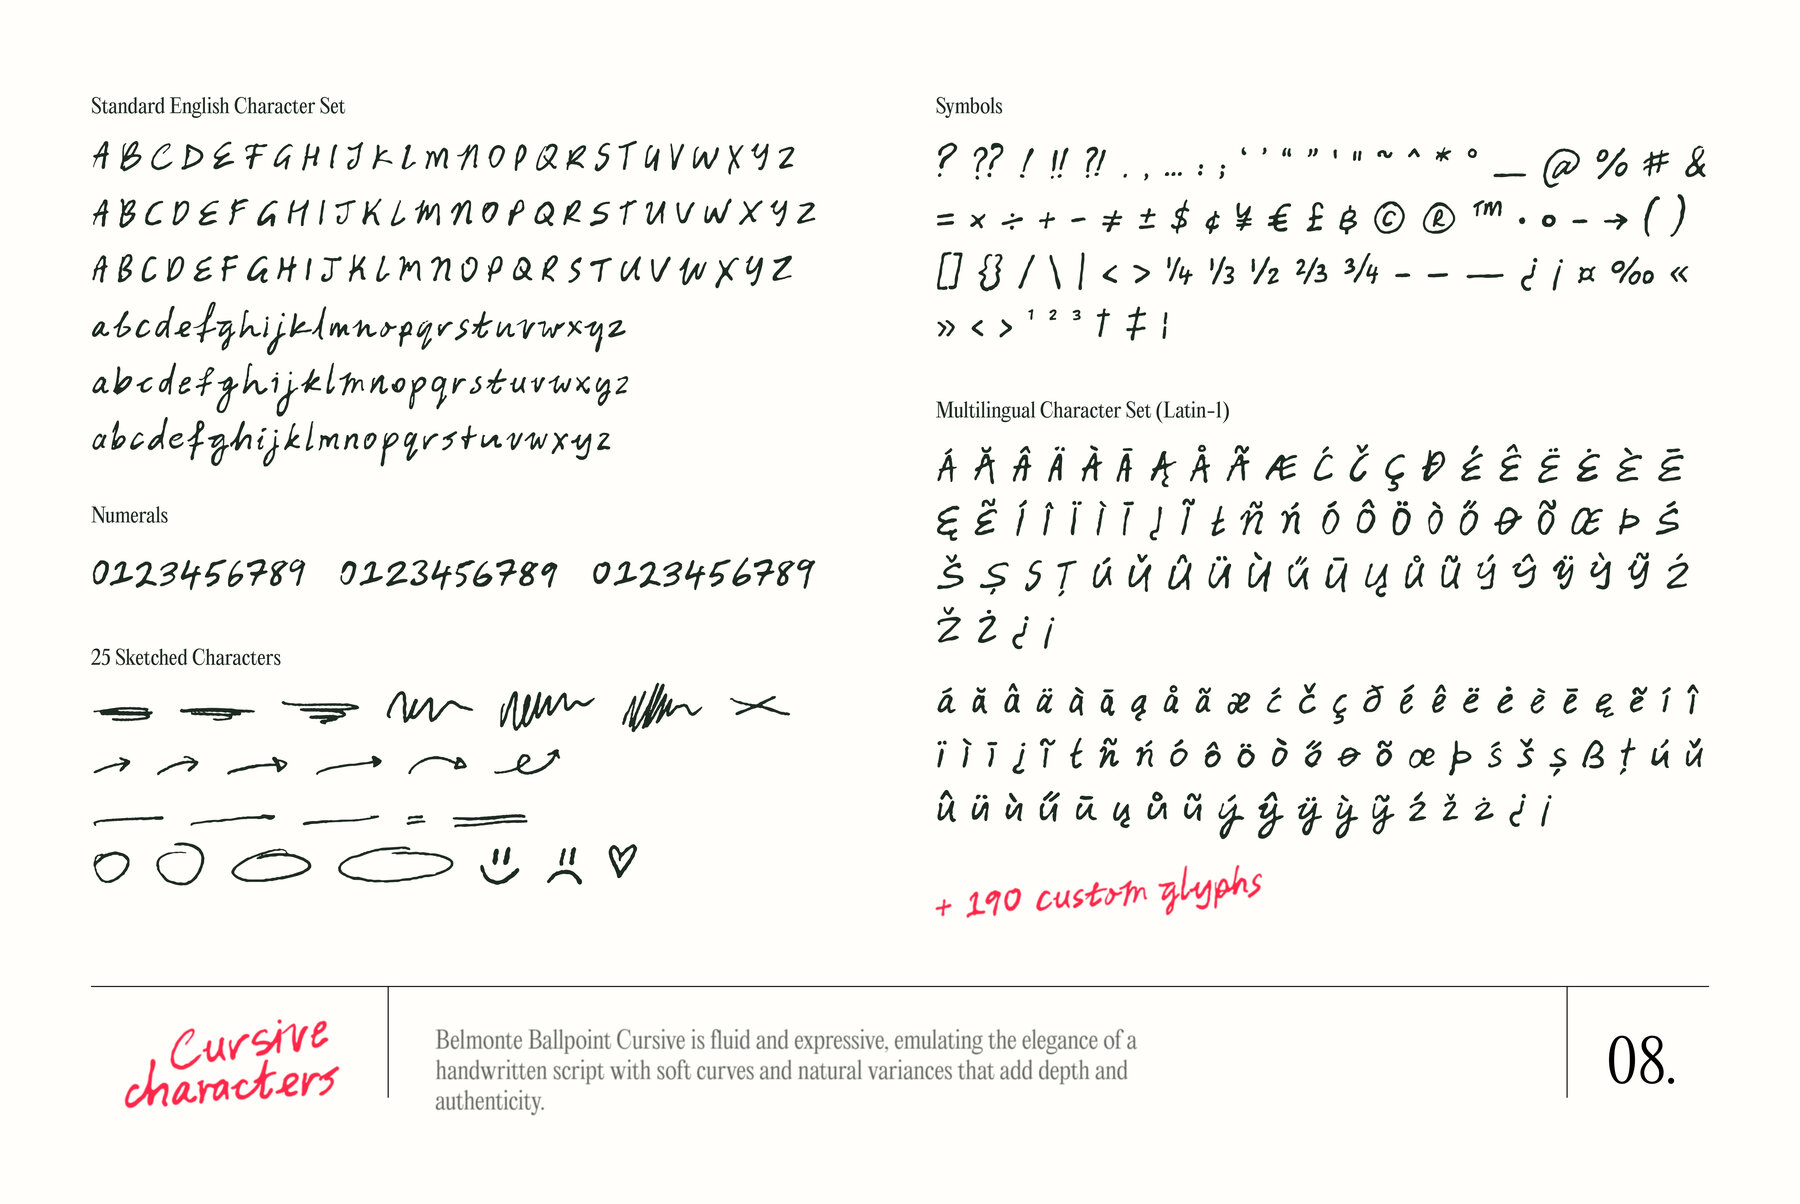 Standard English Character Set
A B C D E F G H I J K L M N O P Q R S T U V W X Y Z
A B C D E F G H I J K L M N O P Q R S T U V W X Y Z
A B C D E F G H I J K L M N O P Q R S T U V W X Y Z
a b c d e f g h i j k l m n o p q r s t u v w x y z
a b c d e f g h i j k l m n o p q r s t u v w x y z
a b c d e f g h i j k l m n o p q r s t u v w x y z
Numerals
0123456789 0123456789 0123456789
25 Sketched Characters
Symbols
? ?? ! !! ?! . , … : ; ‘ ’ “ ” ' " ~ ^ * ° _ @ % # &
= × ÷ + − ≠ ± $ ¢ ¥ € £ ₿ © ® ™ · ∘ - → ( )
[] {} / \ | < > ¼ ⅓ ½ ⅔ ¾ - – — ¿ ¡ ¤ ‰ «
» ‹ › ¹ ² ³ † ‡ ¦
Multilingual Character Set (Latin-1)
Á Ă Â Ä À Ā Ą Å Ã Æ Ć Č Ç Đ É Ê Ë Ė È Ē
Ę Ẽ Í Î Ï Ì Ī Į Ĩ Ł Ñ Ń Ó Ô Ö Ò Ő Ø Õ Œ Þ Ś
Š Ș S Ț Ú Ŭ Û Ü Ù Ű Ū Ų Ů Ũ Ý Ŷ Ÿ Ỳ Ỹ Ź
Ž Ż ¿ ¡
á ă â ä à ā ą å ã æ ć č ç ð é ê ë ė è ē ę ẽ í î
ï ì ī į ĩ ł ñ ń ó ô ö ò ő ø õ œ þ ś š ș ß ț ú ŭ
û ü ù ű ū ų ů ũ ý ŷ ÿ ỳ ỹ ź ž ż ¿ ¡
+ 190 custom glyphs
Cursive
characters
Belmonte Ballpoint Cursive is fluid and expressive, emulating the elegance of a
handwritten script with soft curves and natural variances that add depth and
authenticity.
08.